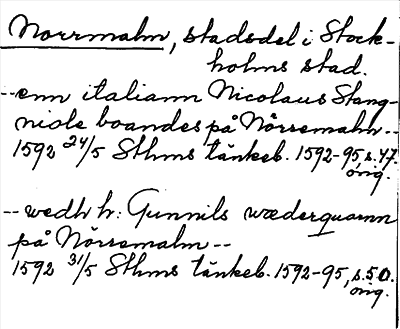 Norrmalm, stadsdel i Stock-
holms stad.
--enn italiann Nicolaus Stang-
nisle boandes på Nörremalm--
1592 24/5 Sthms tänkeb. 1592-95, s. 47.
orig.
--wedh h: Gunnils wæderquarnn
på Nörremalm--
1592 31/5 Sthms tänkeb. 1592-95, s. 50.
orig.